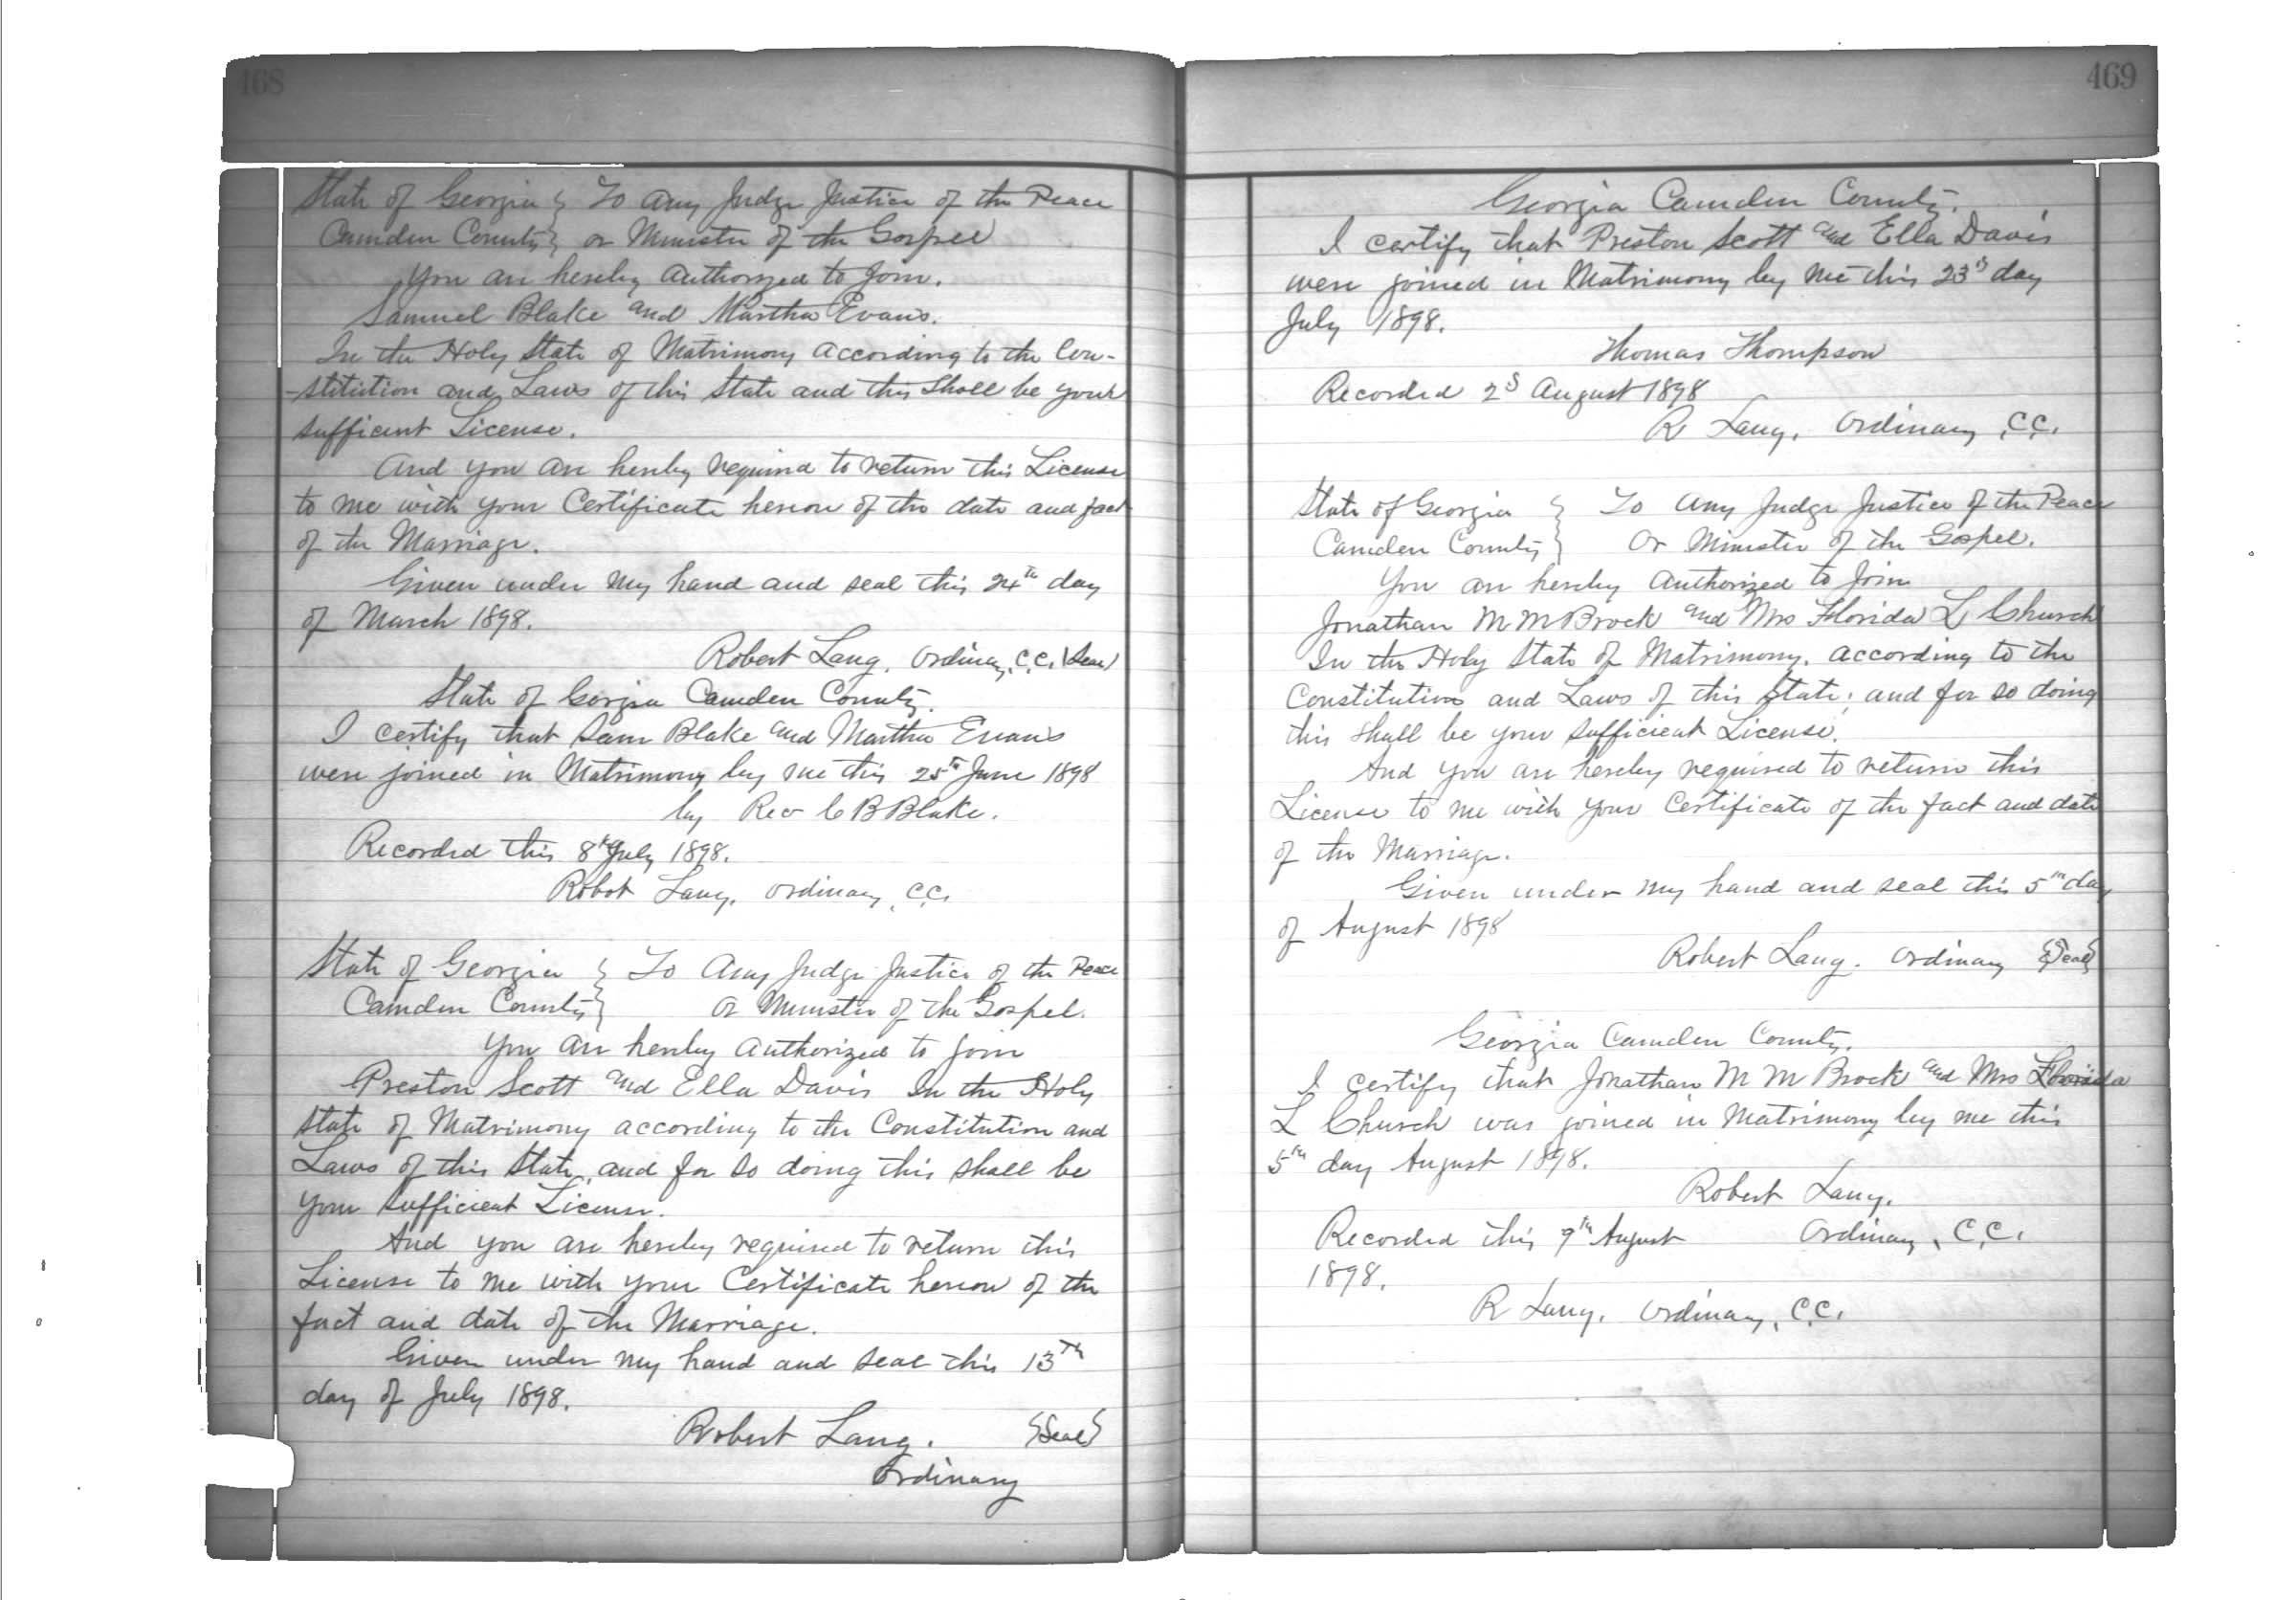 168
State of Georgia } To Any Judge Justice of the Peace
Camden County } or Minister of the Gospel
You are hereby Authorized to Join.
Samuel Blake and Martha Evans.
In the Holy State of Matrimony According to the Con-
-stitution and Laws of this State and this Shall be your
sufficient License.
And you are hereby required to return this License
to me with your Certificate hereon of the date and fact
of the Marriage.
Given under my hand and seal this 24th day
of March 1898.
Robert Lang. Ordinary, C.C. (Seal)
State of Georgia Camden County.
I certify that Sam Blake and Martha Evans
were joined in Matrimony by me this 25th June 1898
by Rev C B Blake.
Recorded this 8th July 1898.
Robt Lang. Ordinary, C.C.
State of Georgia } To Any Judge Justice of the Peace
Camden County } Or Minister of the Gospel.
You are hereby Authorized to join
Preston Scott and Ella Davis In the Holy
State of Matrimony according to the Constitution and
Laws of this State, and for so doing this shall be
your sufficient License.
And you are hereby required to return this
License to me with your Certificate hereon of the
fact and date of the Marriage.
Given under my hand and seal this 13th
day of July 1898.
Robert Lang. {Seal}
Ordinary
469
Georgia Camden County.
I certify that Preston Scott and Ella Davis
were joined in Matrimony by me this 23d day
July 1898.
Thomas Thompson
Recorded 2d August 1898
R Lang. Ordinary, C.C.
State of Georgia } To Any Judge Justice of the Peace
Camden County } Or Minister of the Gospel.
You are hereby Authorized to Join
Jonathan M M Brock and Mrs Florida L Church
In the Holy State of Matrimony. according to the
Constitution and Laws of this State; and for so doing
this shall be your sufficient License.
And you are hereby required to return this
License to me with your Certificate of the fact and date
of the Marriage.
Given under my hand and seal this 5th day
of August 1898
Robert Lang. Ordinary {Seal}
Georgia Camden County.
I certify that Jonathan M M Brock and Mrs Florida
L Church was joined in Matrimony by me this
5th day August 1898.
Robert Lang.
Recorded this 9th August Ordinary, C.C.
1898.
R Lang. Ordinary, C.C.